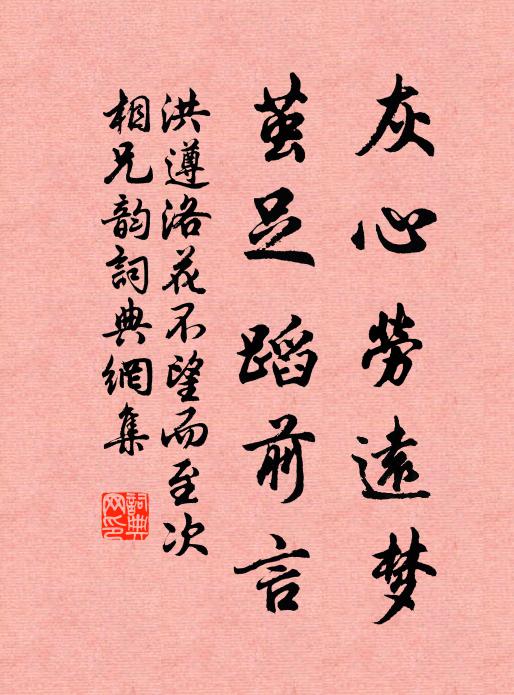 灰心劳遠梦
茧足蹈前言
洪遵洛花不望而至次
相兄韵詞典網集
詞典
网印